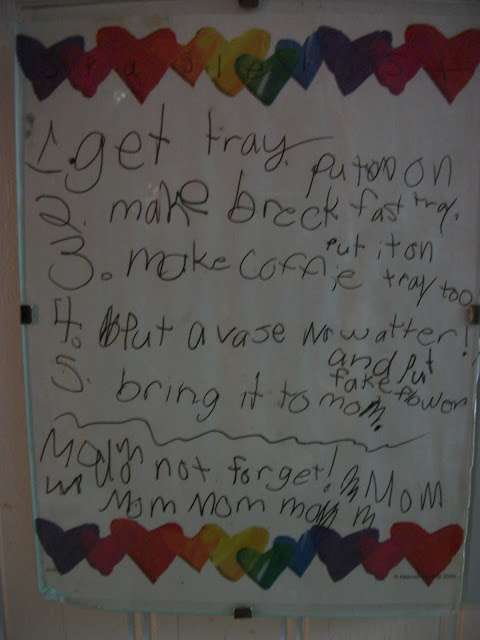 1. get tray.
put on on
2. make breckfast tray.
3. make coffie put it on
tray too
4. put a vase No watter!
and put
fake flower
5. bring it to mom.
not forget! Mom
Mom Mom mom